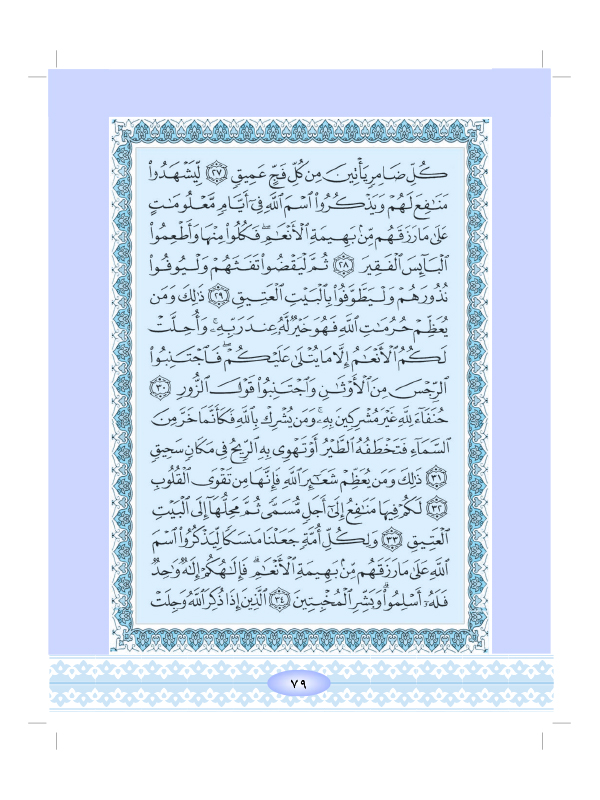 كُلِّ ضَامِرٍ يَأْتِينَ مِن كُلِّ فَجٍّ عَمِيقٍ ٢٧ لِّيَشْهَدُوا۟
مَنَـٰفِعَ لَهُمْ وَيَذْكُرُوا۟ ٱسْمَ ٱللَّهِ فِىٓ أَيَّامٍ مَّعْلُومَـٰتٍ
عَلَىٰ مَا رَزَقَهُم مِّنۢ بَهِيمَةِ ٱلْأَنْعَـٰمِ ۖ فَكُلُوا۟ مِنْهَا وَأَطْعِمُوا۟
ٱلْبَآئِسَ ٱلْفَقِيرَ ٢٨ ثُمَّ لْيَقْضُوا۟ تَفَثَهُمْ وَلْيُوفُوا۟
نُذُورَهُمْ وَلْيَطَّوَّفُوا۟ بِٱلْبَيْتِ ٱلْعَتِيقِ ٢٩ ذَٰلِكَ وَمَن
يُعَظِّمْ حُرُمَـٰتِ ٱللَّهِ فَهُوَ خَيْرٌ لَّهُۥ عِندَ رَبِّهِۦ ۗ وَأُحِلَّتْ
لَكُمُ ٱلْأَنْعَـٰمُ إِلَّا مَا يُتْلَىٰ عَلَيْكُمْ ۖ فَٱجْتَنِبُوا۟
ٱلرِّجْسَ مِنَ ٱلْأَوْثَـٰنِ وَٱجْتَنِبُوا۟ قَوْلَ ٱلزُّورِ ٣٠
حُنَفَآءَ لِلَّهِ غَيْرَ مُشْرِكِينَ بِهِۦ ۚ وَمَن يُشْرِكْ بِٱللَّهِ فَكَأَنَّمَا خَرَّ مِنَ
ٱلسَّمَآءِ فَتَخْطَفُهُ ٱلطَّيْرُ أَوْ تَهْوِى بِهِ ٱلرِّيحُ فِى مَكَانٍ سَحِيقٍ
٣١ ذَٰلِكَ وَمَن يُعَظِّمْ شَعَـٰٓئِرَ ٱللَّهِ فَإِنَّهَا مِن تَقْوَى ٱلْقُلُوبِ
٣٢ لَكُمْ فِيهَا مَنَـٰفِعُ إِلَىٰٓ أَجَلٍ مُّسَمًّى ثُمَّ مَحِلُّهَآ إِلَى ٱلْبَيْتِ
ٱلْعَتِيقِ ٣٣ وَلِكُلِّ أُمَّةٍ جَعَلْنَا مَنسَكًا لِّيَذْكُرُوا۟ ٱسْمَ
ٱللَّهِ عَلَىٰ مَا رَزَقَهُم مِّنۢ بَهِيمَةِ ٱلْأَنْعَـٰمِ ۗ فَإِلَـٰهُكُمْ إِلَـٰهٌ وَٰحِدٌ
فَلَهُۥٓ أَسْلِمُوا۟ ۗ وَبَشِّرِ ٱلْمُخْبِتِينَ ٣٤ ٱلَّذِينَ إِذَا ذُكِرَ ٱللَّهُ وَجِلَتْ
٧٩